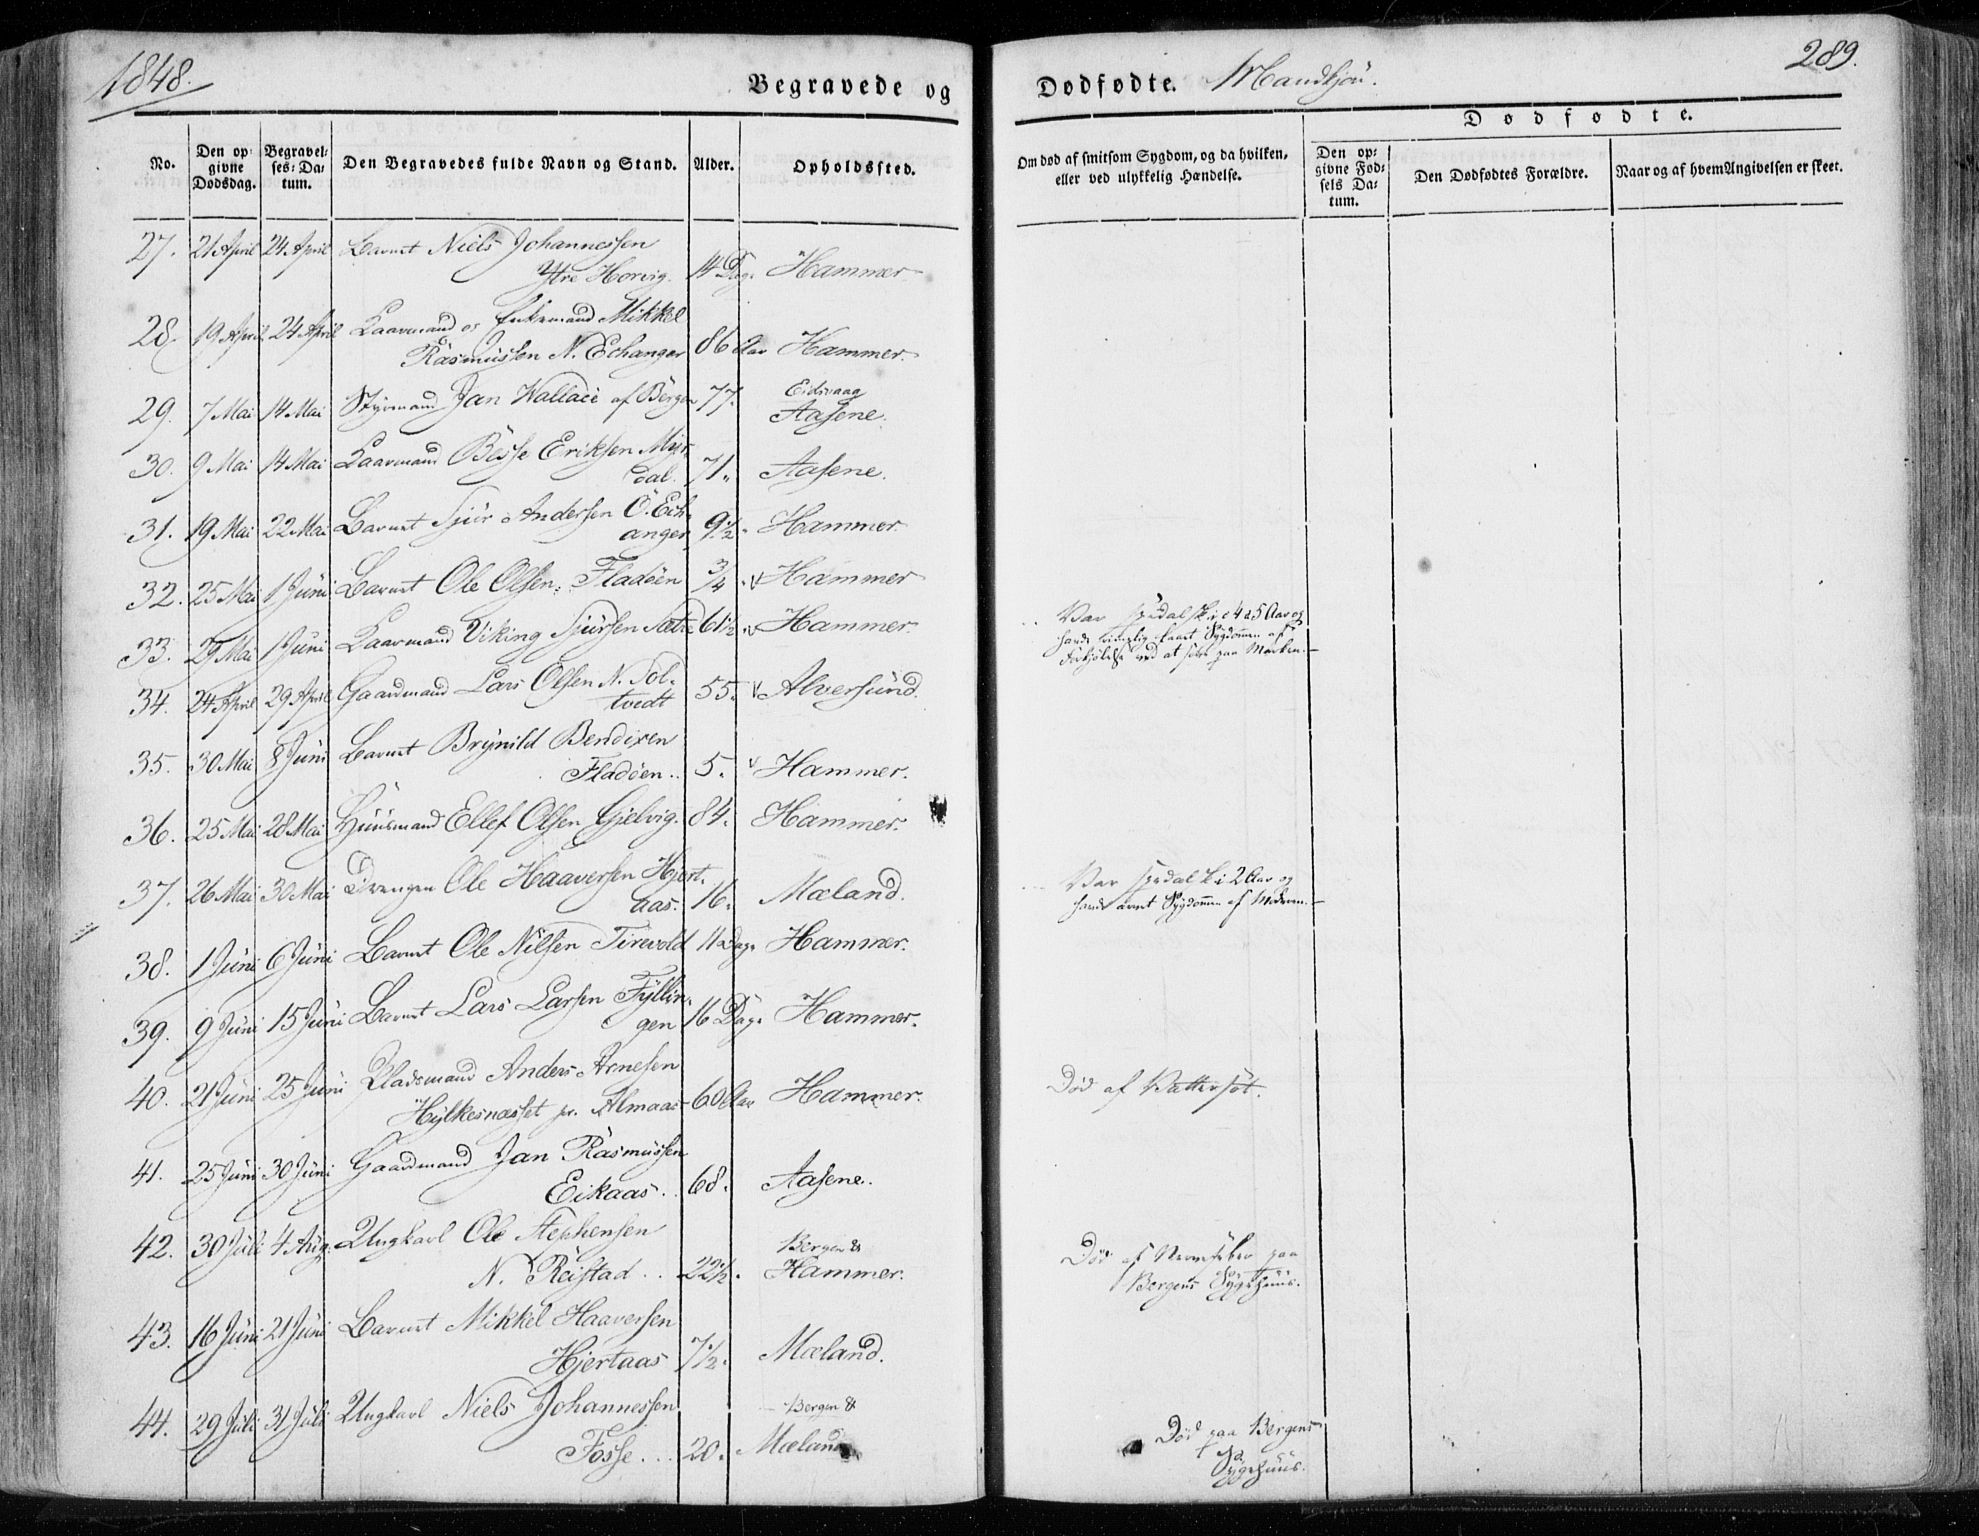 1848.
Begravede og
Dødfødte. Mandkjøn.
289.
No.
Den opgivne Dødsdag.
Begravelses-Datum.
Den Begravedes fulde Navn og Stand.
Alder.
Opholdssted.
Om død af smitsom Sygdom, og da hvilken, eller ved ulykkelig Hændelse.
Dødfødte.
Den opgivne Fødsels Datum.
Den Dødfødtes Forældre.
Naar og af hvem Angivelsen er skeet.
27. 21 April 24 April Barnet Niels Johannessen
Ytre Horvig. 14 Dage Hammer
28. 19 April 24 April Kaarmand og Enkemand Mikkel
Rasmussen N. Echanger 86 Aar Hammer.
29. 7 Mai 14 Mai Styrmand Jan Wallace af Bergen 77. Eidsvaag
Aasene.
30. 9 Mai 14 Mai Kaarmand Besse Eriksen Myr-
dal. 71. Aasene.
31. 19 Mai 22 Mai Barnet Sjur Andersen Ö. Ech-
anger 9 1/2 Hammer
32. 25 Mai 1 Juni Barnet Ole Olsen Fladöen 3/4 v Hammer
33. 29 Mai 1 Juni Kaarmand Viking Sjursen Sætre 61 1/2 v Hammer. Var spedalsk i 4 a 5 Aar og
havde rimelig faaet Sygdommen af
Forkjølelse ved at paa Marken.
34. 24 April 29 April Gaardmand Lars Olsen N. Töl-
tvedt 55. v Alversund.
35. 30 Mai 8 Juni Barnet Brynild Bendixen
Fladöen. 5. v Hammer.
36. 25 Mai 28 Mai Huusmand Ellef Olsen Gjelvig. 84. Hammer.
37. 26 Mai 30 Mai Drengen Ole Haaversen Hjert-
aas. 16. Mæland. Var spedalsk i 2 Aar og
havde arvet Sygdommen af Moderen.
38. 1 Juni 6 Juni Barnet Ole Nilsen Tirevold 11 Dage Hammer.
39. 9 Juni 15 Juni Barnet Lars Larsen Fyllin-
gen 16 Dage Hammer.
40. 21 Juni 25 Juni Pladsmand Anders Arnesen
Hylkesnæsset pr. Almaas 60 Aar Hammer. Död af Vattersot.
41. 25 Juni 30 Juni Gaardmand Jan Rasmussen
Eikaas. 68. Aasene.
42. 30 Juli 4 Aug. Ungkarl Ole Stephensen
N. Reistad 22 1/2. Bergen &
Hammer. Död af Nervefeber paa
Bergens Sygehuus.
43. 16 Juni 21 Juni Barnet Mikkel Haaversen
Hjertaas 7 1/2. Mæland.
44. 29 Juli 31 Juli Ungkarl Niels Johannessen
Fosse 20. Bergen &
Mæland Död paa Bergens
Sygehuus.